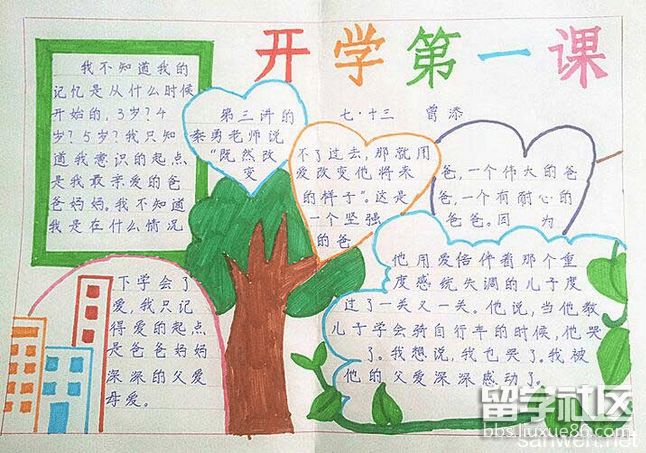 开学第一课
七·十三 曾添
我不知道我的
记忆是从什么时候
开始的,3岁?4
岁?5岁?我只知
道我意识的起点
是我最亲爱的爸
爸妈妈。我不知道
我是在什么情况
下学会了
爱,我只记
得爱的起点
是爸爸妈妈
深深的父爱
母爱。
第三讲的
秦勇老师说
“既然改
变
不了过去,那就用
爱改变他将来
的样子”。这是
一个坚强
的爸
爸,一个伟大的爸
爸,一个有耐心的
爸爸。因为
他用爱陪伴着那个重
度感统失调的儿子度
过了一关又一关。他说,当他教
儿子学会骑自行车的时候,他哭
了。我想说,我也哭了。我被
他的父爱深深感动了。
留学社区
bbs.liuxue86.com
sanwen.net